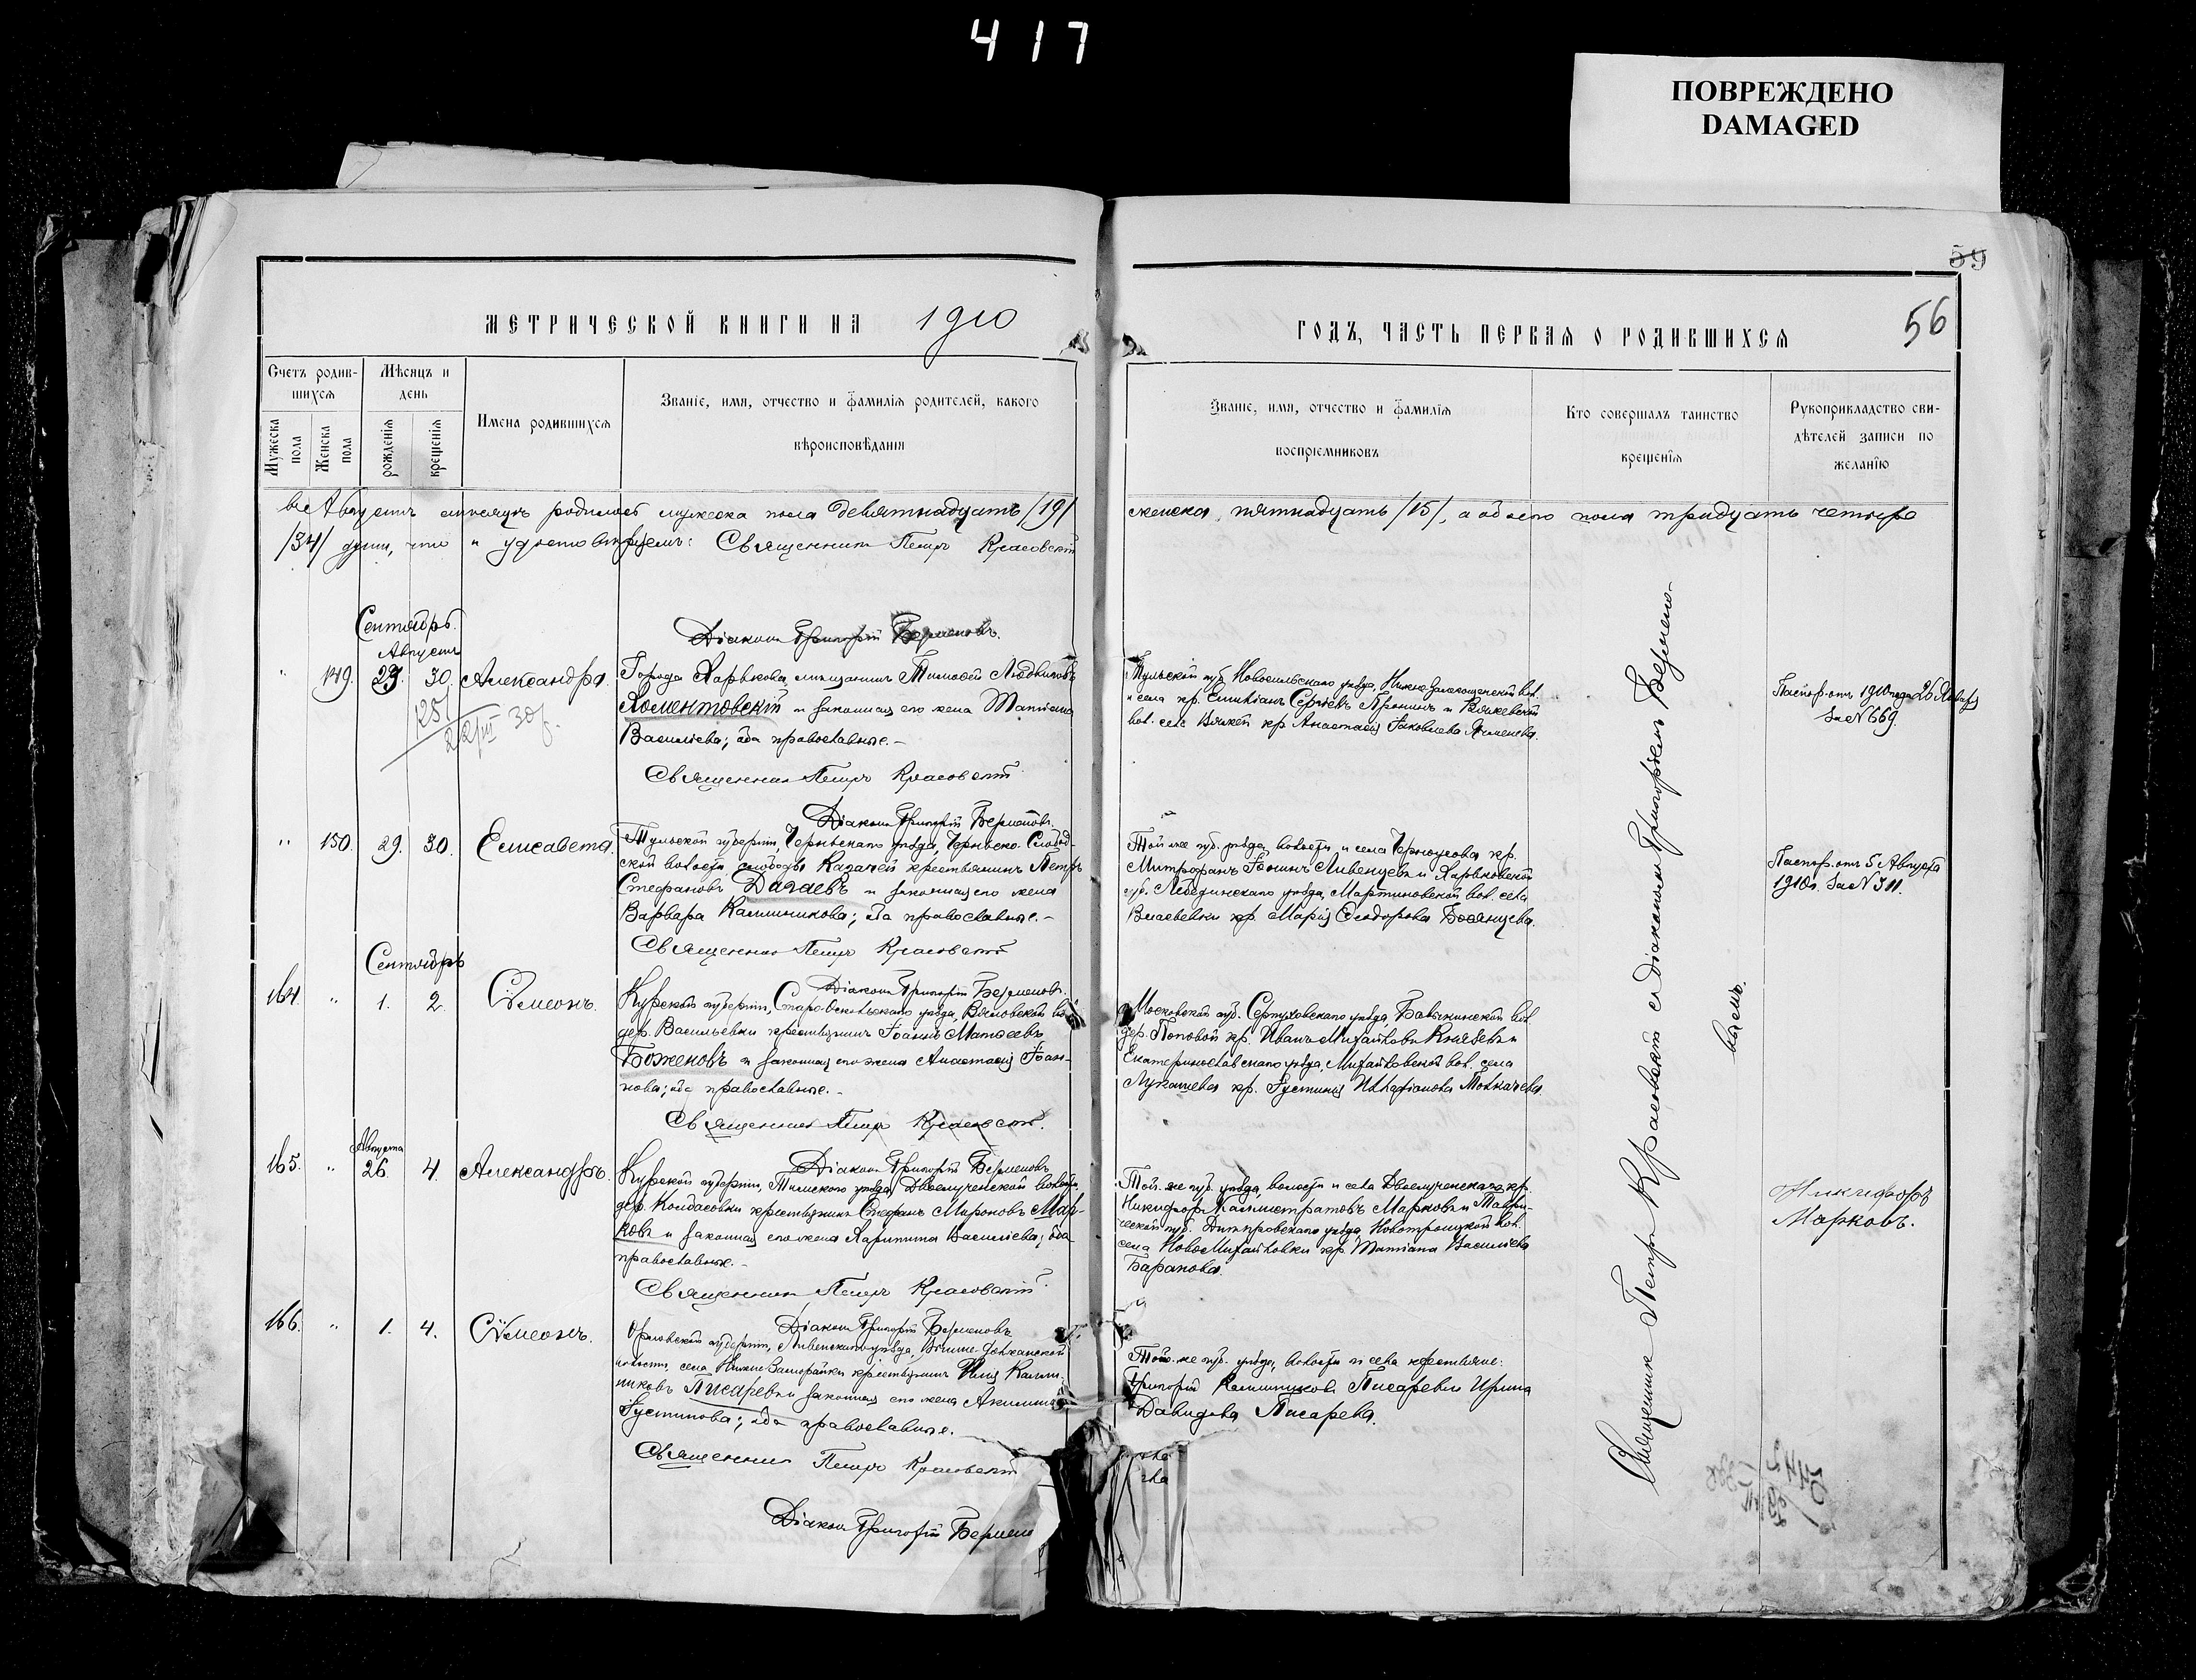 417
ПОВРЕЖДЕНО
DAMAGED
59
МЕТРИЧЕСКОЙ КНИГИ НА 1910
ГОДЪ, ЧАСТЬ ПЕРВАЯ О РОДИВШИХСЯ
56
Счетъ родив-
шихся
Мужеска
пола
Женска
пола
Мѣсяцъ и
день
рожденія
крещенія
Имена родившихся
Званіе, имя, отчество и фамилія родителей, какого
вѣроисповѣданія
Званіе, имя, отчество и фамилія
воспріемниковъ
Кто совершалъ таинство
крещенія
Рукоприкладство сви-
дѣтелей записи по
желанію
въ Августѣ мѣсяцѣ родилось мужеска пола девятнадцать /19/
женска, пятнадцать /15/, а обоего пола тридцать четыре
/34/ души, что и удостовѣряемъ: Священникъ Петръ Красовскій
Діаконъ Григорій
Сентябрь.
Августъ
149. 29. 30. Александра.
Города Харькова мѣщанинъ Тимоѳей Людвиговъ
Хоментовскій и законная его жена Татіана
Василіева; оба православные.-
Священникъ Петръ Красовскій
Діаконъ Григорій
Тульской губ. Новосильскаго уѣзда, вол.
и села кр. Емиліанъ Сергіевъ Пронинъ и
вол. села кр. Анастасія Іаковлева
Паспор. отъ 1910 года 26 Января
за №669.
125
30 р.
150. 29. 30. Елисавета.
Тульской губерніи, Чернскаго уѣзда, Чернско-Слобод-
ской волости слободы Казачей крестьянинъ Петръ
Стефановъ Дагаевъ и законная его жена
Варвара Каллиникова; оба православные.-
Священникъ Петръ Красовскій
Діаконъ Григорій
Той же губ. уѣзда, волости и села кр.
Митрофанъ Іоаннъ Ливенцевъ и Харьковской
губ. Лебединскаго уѣзда, Мартиновской вол. села
кр. Марія Ѳеодорова
Паспор. отъ 5 Августа
1910 г. за №311.
Сентябрь
164. 1. 2. Сѵмеонъ.
Курской губерніи, Старо-Оскольскаго уѣзда, вол.
дер. Васильевки крестьянинъ Іоаннъ Матѳеевъ
Боженовъ и законная его жена Анастасія Іоан-
нова; оба православные.-
Священникъ Петръ Красовскій.
Діаконъ Григорій
Московской губ. Серпуховскаго уѣзда, Бавыкинской вол.
дер. Поповой кр. Иванъ Михайловъ Князевъ и
Екатеринославскаго уѣзда, Михайловской вол. села
Лукашевка кр. Іустинія Толкачева.
165. Августа 26. 4. Александръ.
Курской губерніи, Тимскаго уѣзда, Двоелученской волости,
дер. Колдасовки крестьянинъ Стефанъ Мироновъ Мар-
ковъ и законная его жена Харитина Василіева; оба
православные.-
Священникъ Петръ Красовскій.
Діаконъ Григорій
Той-же губ. уѣзда, волости и села Двоелученскаго кр.
Никифоръ Каллистратовъ Марковъ и Таври-
ческой губ. Днѣпровскаго уѣзда, Новотроицкой вол.
села НовоМихайловки кр. Татіана Василіева
Баранова.
Никифоръ
Марковъ.
166. 1. 4. Сѵмеонъ.
Орловской губерніи, Ливенскаго уѣзда, Вышне-Должанской
волости, села крестьянинъ Илія Каллин-
никовъ Писаревъ и законная его жена Акилина
Іустинова; оба православные.
Священникъ Петръ Красовскій
Діаконъ Григорій
Той-же губ. уѣзда, волости и села крестьяне:
Григорій Каллиниковъ Писаревъ и Ирина
Давидова Писарева.
Священникъ Петръ Красовскій съ діакономъ Григоріемъ